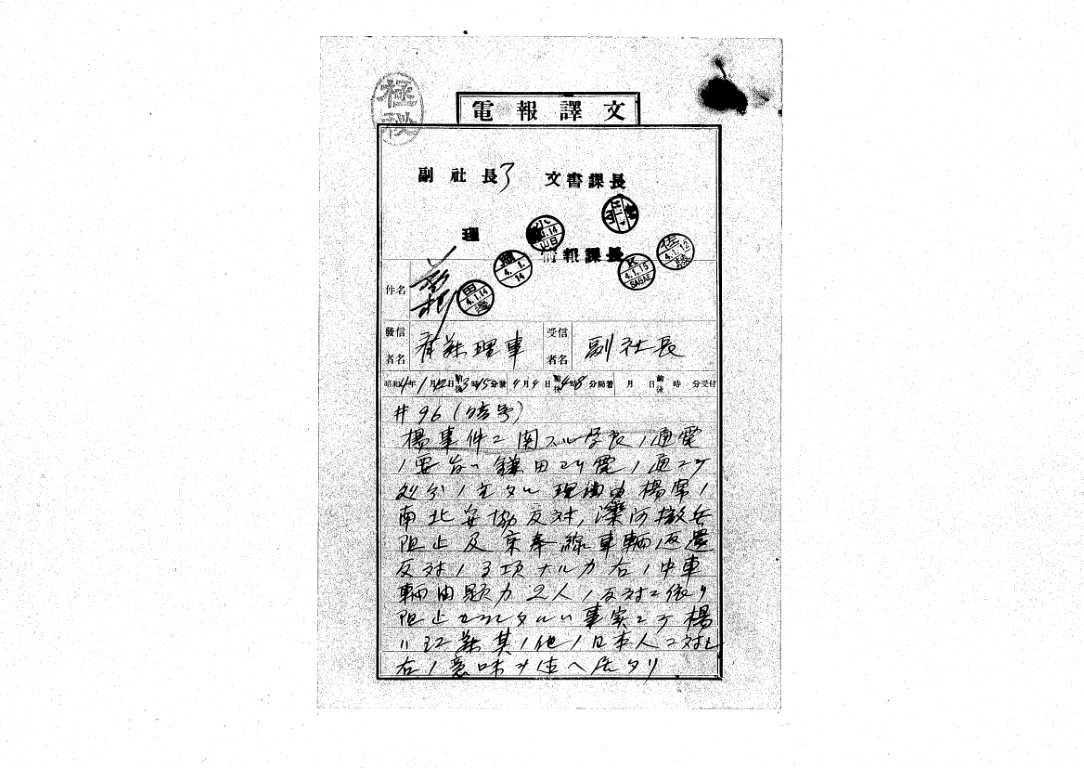 極秘
電報譯文
副社長 文書課長
理
情報課長
件名
發信者名 斉藤理事 受信者名 副社長
昭和4年1月12日前後3時15分發 日前後4時8分局著 月日前後時分受付
#96(暗号)
楊事件ニ関スル学良ノ通電
ノ要旨ハ鎌田ヨリ電ノ通ニテ
処分ノ主タル理由ハ楊常ノ
南北妥協反対、灤河撤兵
阻止及京奉線車輛返還
反対ノ3項ナルカ右ノ中車
輛問題カ2人ノ反対ニ依リ
阻止セラレタルハ事実ニテ楊
ハ江藤其ノ他ノ日本人ニ対シ
右ノ意味ヲ伝ヘ居タリ